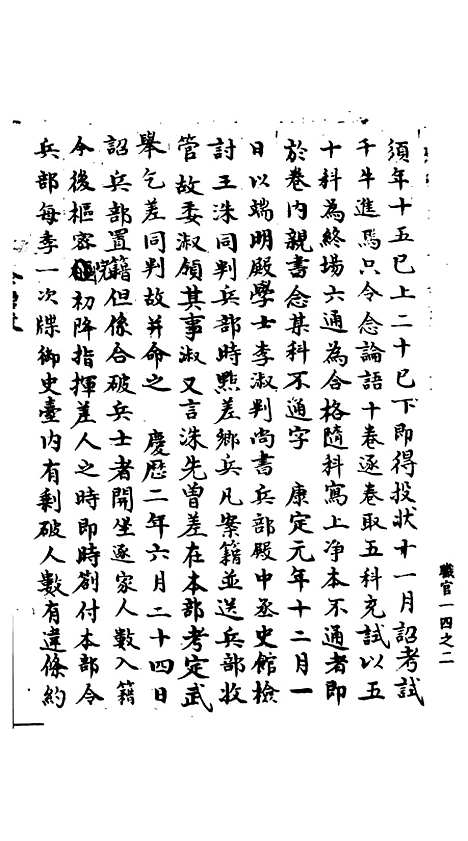 須年十五已上二十已下即得投狀十一月詔考試
千牛進馬只令念論語十卷逐卷取五科充試以五
十科為終場六通為合格隨科寫上净本不通者即
於卷内親書念某科不通字　康定元年十二月一
日以端明殿學士李淑判尚書兵部殿中丞史館檢
討王洙同判兵部時點差鄉兵凡案籍並送兵部收
管故委淑領其事淑又言洙先曾差在本部考定武
舉乞差同判故并命之　慶歷二年六月二十四日
詔兵部置籍但係合破兵士者開坐逐家人數入籍
今後樞密院初降指揮差人之時即時劄付本部令
兵部每季一次牒御史臺内有剩破人數有違條約
職官一四之二